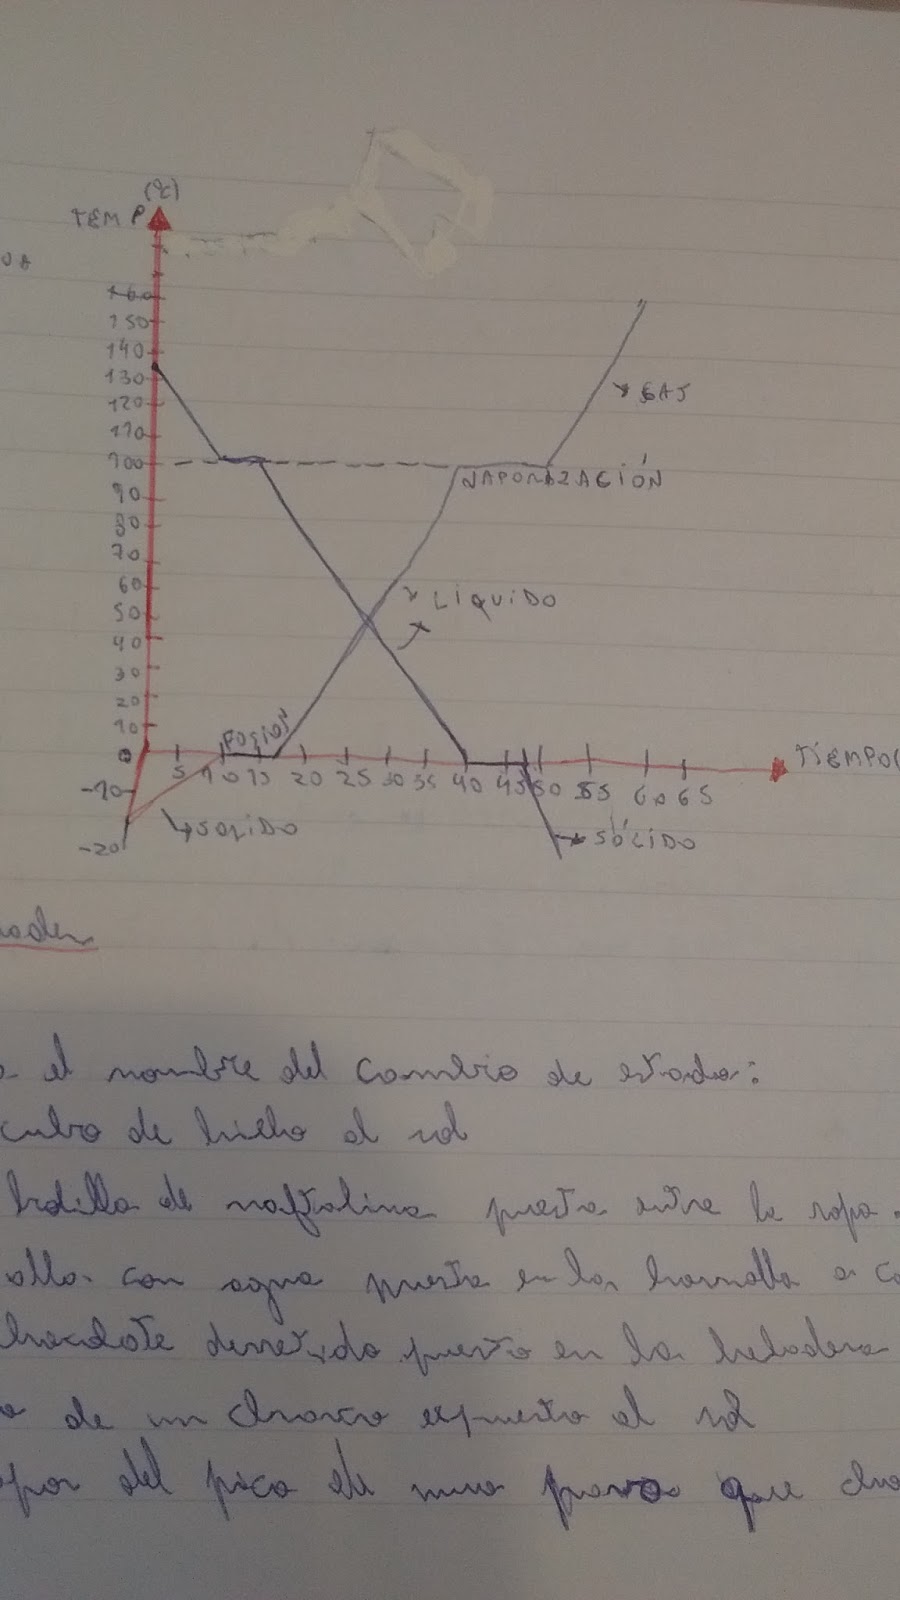 (°C)
TEMP
160
150
140
130
120
110
100
90
80
70
60
50
40
30
20
10
0
-10
-20
GAS
VAPORIZACIÓN
LÍQUIDO
FUSIÓN
5 10 15 20 25 30 35 40 45 50 55 60 65
TIEMPO(
SOLIDO
SÓLIDO
el nombre del cambio de estado:
cubo de hielo al sol
bolilla de naftalina puesta entre la ropa.
olla con agua puesta en la hornalla a
chocolate derretido puesto en la heladera
de un charco expuesto al sol
del pico de una pava que